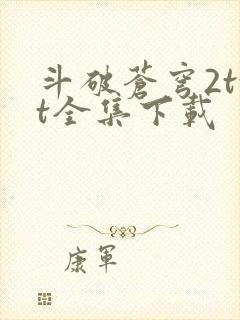 斗破蒼穹2t
t全集下載
康軍